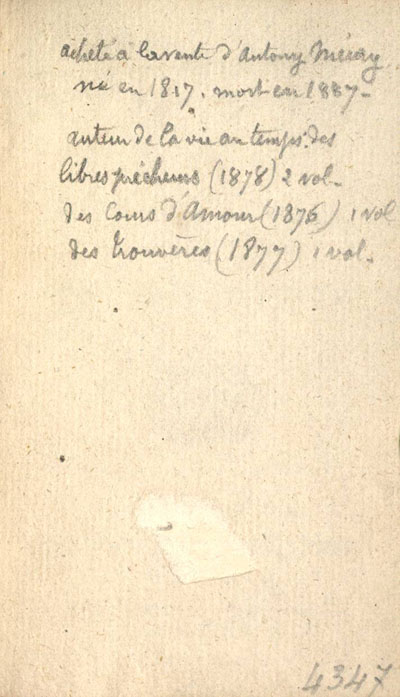 acheté à la vente d'Antony Méray
né en 1817. mort en 1887-
auteur de la vie au temps des
libres prêcheurs (1878) 2 vol.
des Cours d'Amour (1876) 1 vol
des trouvères (1877) 1 vol.
4347